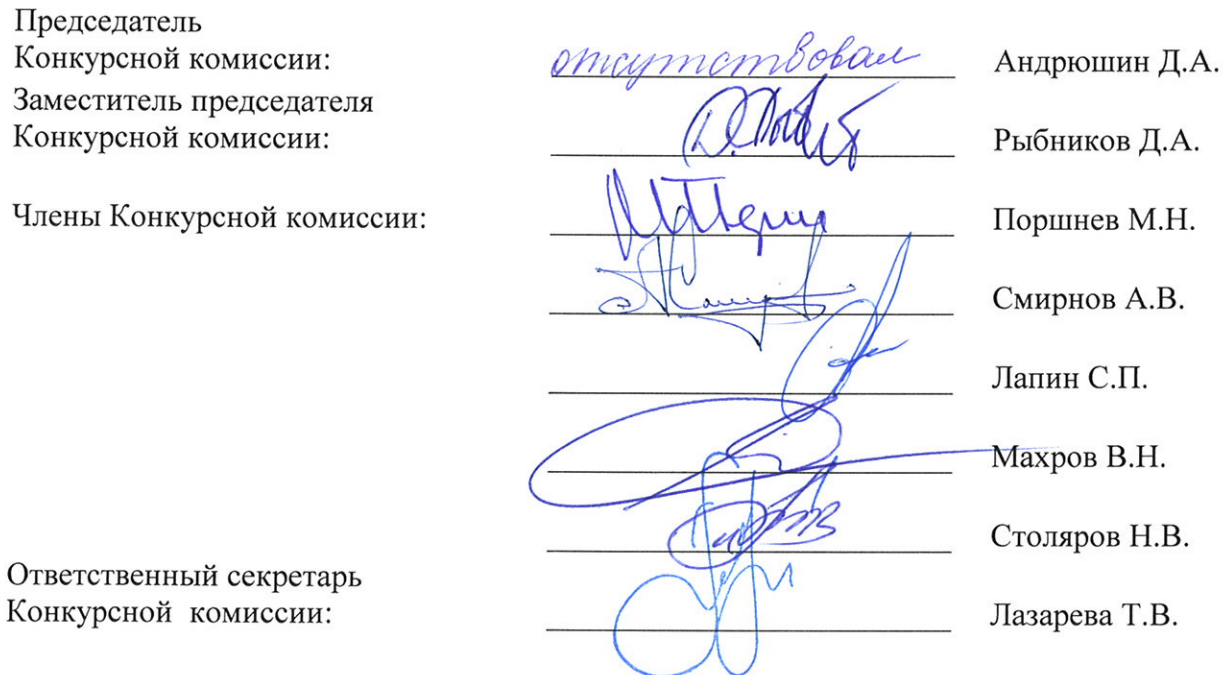 Председатель
Конкурсной комиссии: отсутствовал Андрюшин Д.А.
Заместитель председателя
Конкурсной комиссии: Рыбников Д.А.
Члены Конкурсной комиссии: Поршнев М.Н.
Смирнов А.В.
Лапин С.П.
Махров В.Н.
Столяров Н.В.
Ответственный секретарь
Конкурсной комиссии: Лазарева Т.В.